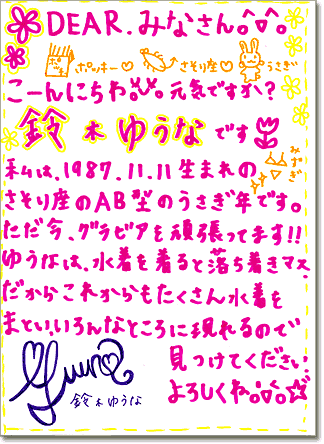 DEAR. みなさん。^o^。
ポッキー♡ さそり座♡ うさぎ
こーんにちわ。元気ですか?
鈴木ゆうな です
みずぎ
私は、1987.11.11 生まれの
さそり座のAB型のうさぎ年です。
ただ今、グラビアを頑張ってます!!
ゆうなは、水着を着ると落ち着きマス、
だからこれからもたくさん水着を
まとい、いろんなところに現れるので
見つけてください
よろしくね。^o^。☆
鈴木ゆうな